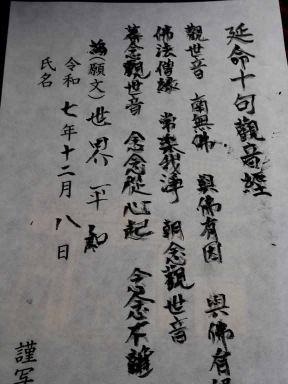 延命十句觀音經
觀世音 南無佛 與佛有因 與佛有
佛法僧縁 常樂我淨 朝念觀世音
暮念觀世音 念念從心起 念念不離
為(願文)世界平和
令和七年十二月八日
氏名
謹写